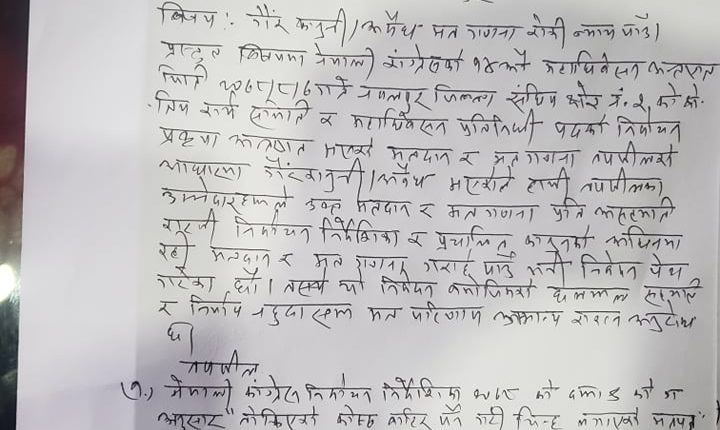 विषय :- गैर कानुनी/अवैध मत गणना रोकी न्याय पाँउ।
प्रस्तुत बिषयमा नेपाली कांग्रेसको १४औं महाधिवेशन अन्तरगत
मिति २०७८/८/७ गते नवलपुर जिल्ला संघिय क्षेत्र नं. १ को क्षे-
त्रिय कार्य समिति र महाधिवेशन प्रतिनिधी पदको निर्वाचन
प्रकृया अन्तरगत भएको मतदान र मत गणना तपशीलको
आधारमा गैरकानुनी/अवैध भएकोले हामी तपशीलका
उम्मेदवारहरुले उक्त मतदान र मत गणना प्रति असहमती
निर्वाचन निर्देशिका र प्रचलित कानुनको अधिनमा
रही मतदान र मत गणना गराई पाँउ भनी निवेदन पेश
गरेका छौं। तसर्थ यो निवेदन बमोजिमको छलफल सहमति
र निर्णय नहुदा सम्म मत परिणाम अमान्य अनुरोध
छ।
तपशील
(१.) नेपाली कांग्रेस निर्वाचन निर्देशिका २०७८ को दफा को
अनुसार "तोकिएको कोष्ठ बाहिर पर्ने गरी चिन्ह लगाएको मतपत्र"